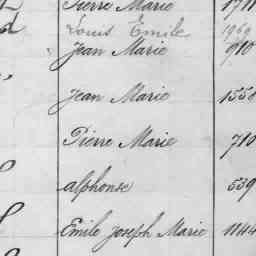 Pierre Marie
Louis Emile 1969
Jean Marie 910
Jean Marie 1558
Pierre Marie 710
alphonse 539
Emile Joseph Marie 1144